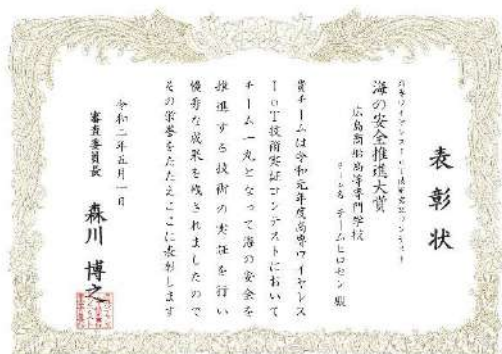 表彰状
高専ワイヤレスIoT技術実証コンテスト
海の安全推進大賞
広島商船高等専門学校
チーム名 チームヒロセン 殿
貴チームは令和元年度高専ワイヤレス
IoT技術実証コンテストにおいて
チーム一丸となって海の安全を
推進する技術の実証を行い
優秀な成果を残されましたので
その栄誉をたたえここに表彰します
令和二年五月一日
審査委員長 森川 博之